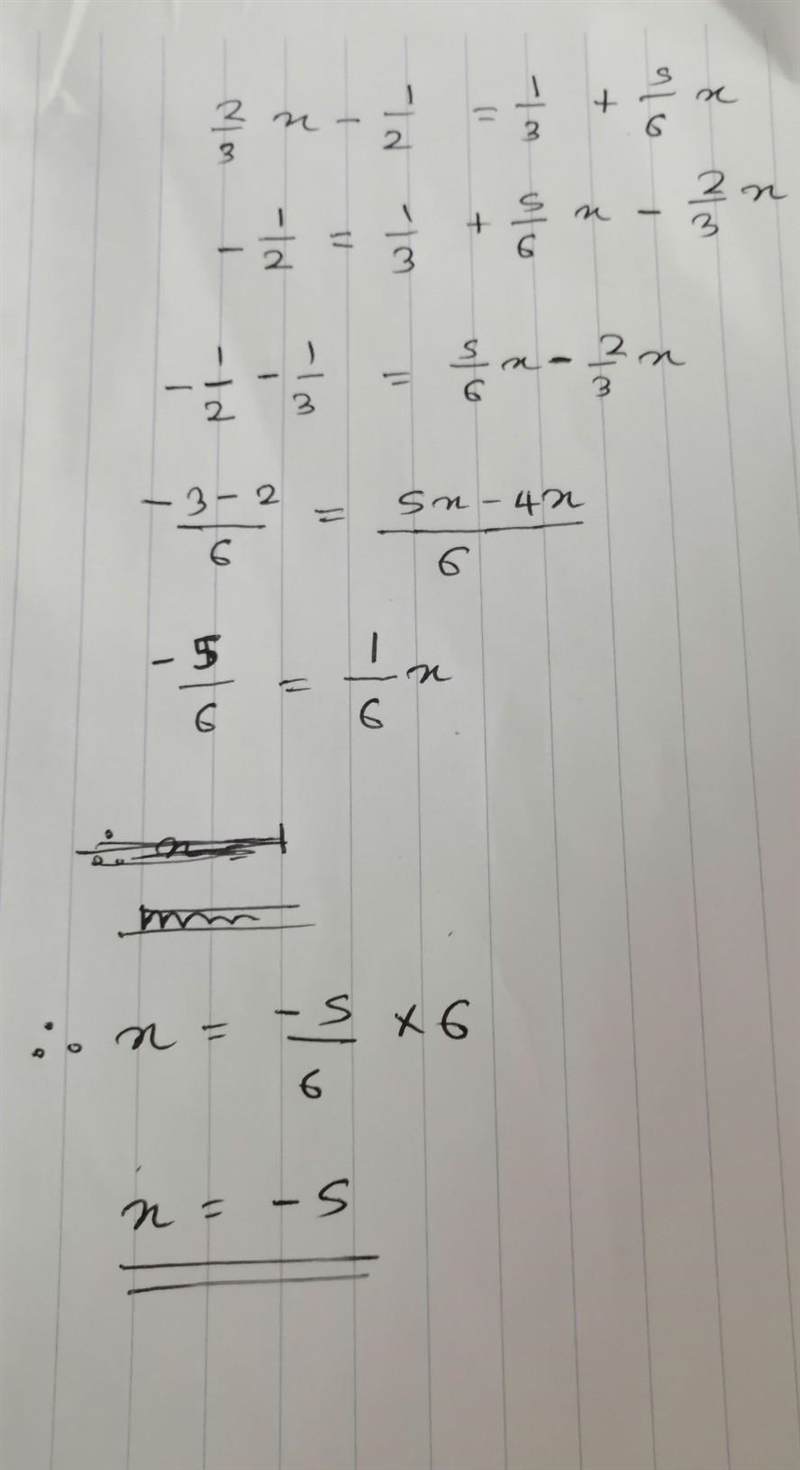 2/3 x - 1/2 = 1/3 + 5/6 x
- 1/2 = 1/3 + 5/6 x - 2/3 x
- 1/2 - 1/3 = 5/6 x - 2/3 x
(-3 - 2)/6 = (5x - 4x)/6
-5/6 = 1/6 x
∴ x = -5/6 × 6
x = -5